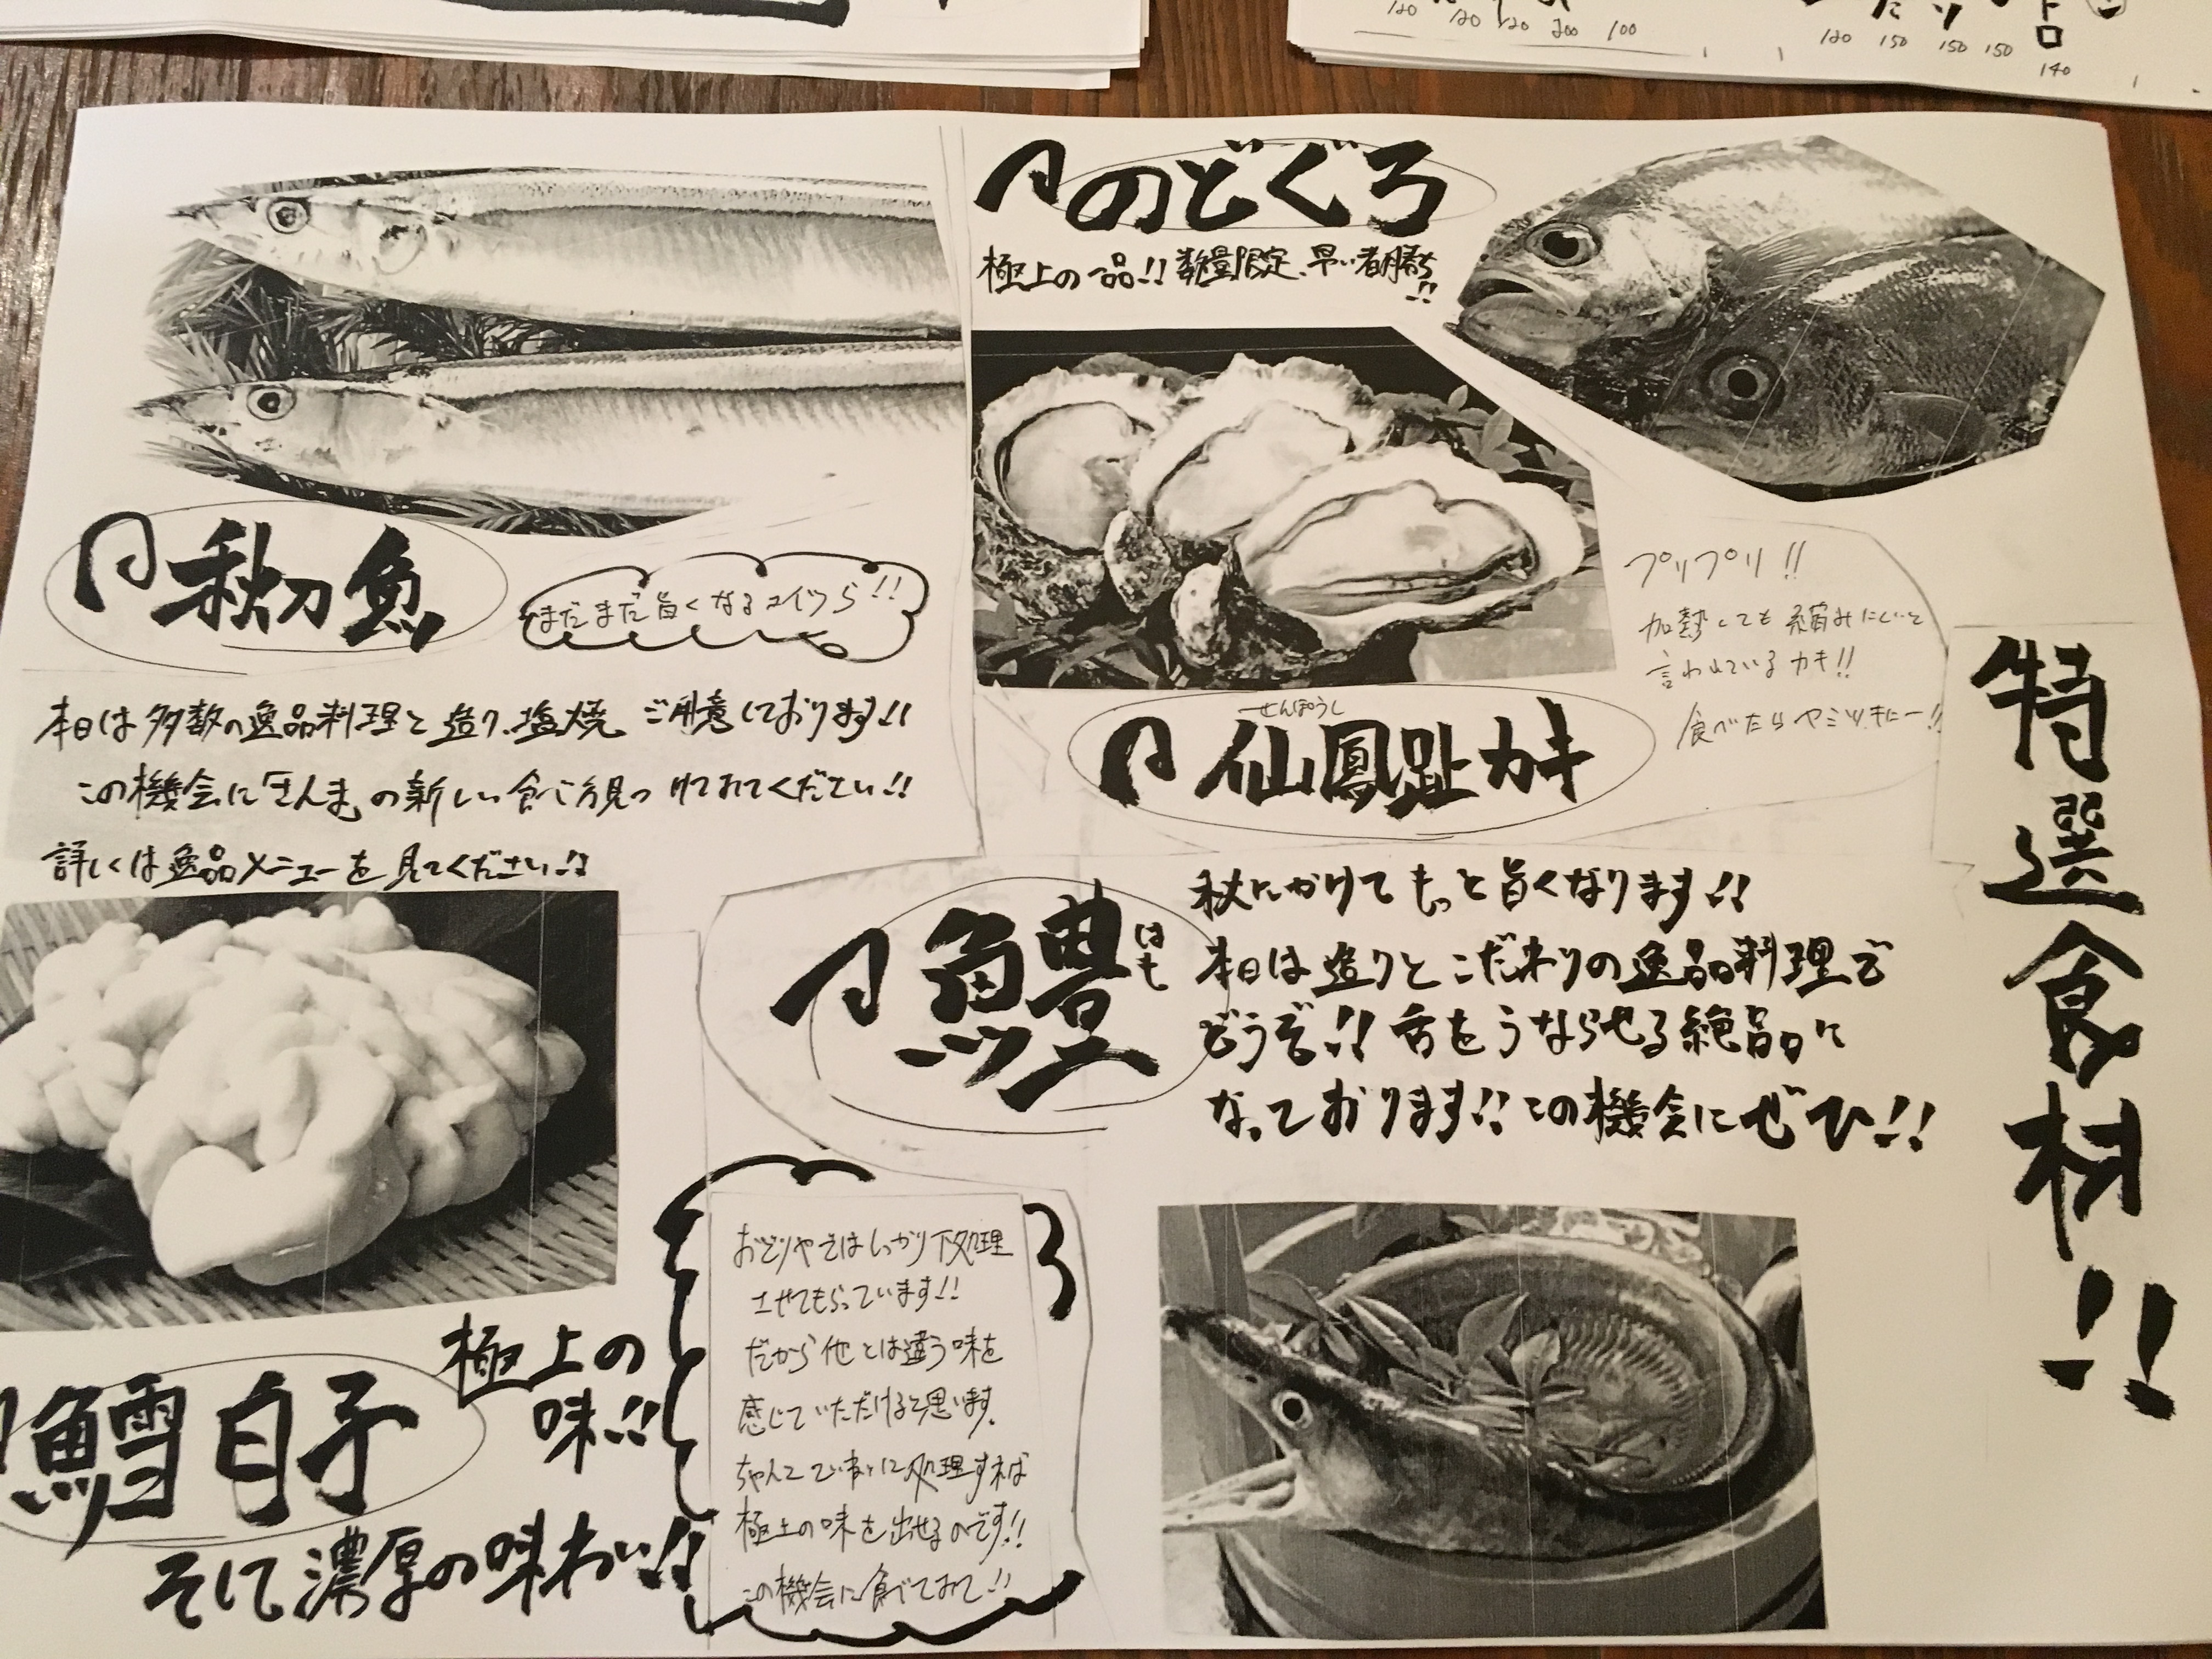 特選食材!!
のどぐろ
極上の一品!! 数量限定、早い者勝ち!!
プリプリ!!
加熱しても縮みにくいと
言われているカキ!!
食べたらヤミツキにー!!
せんぽうし
仙鳳趾カキ
秋刀魚
まだまだ旨くなるコイツら!!
本日は多数の逸品料理と造り、塩焼 ご用意しております!!
この機会に「さんま」の新しい食べ方見つけてみてください!!
詳しくは逸品メニューを見てください!!
鱧
はも
秋にかけてもっと旨くなります!!
本日は造りとこだわりの逸品料理で
どうぞ!! 舌をうならせる絶品に
なっております!! この機会にぜひ!!
鱈白子
極上の
味!!
そして濃厚の味わい!!
おどりやではしっかり下処理
させてもらっています!!
だから他とは違う味を
感じていただけると思います。
ちゃんとていねいに処理すれば
極上の味を出せるのです!!
この機会に食べてみて!!
120 120 120 200 100
120 150 150 150 140
トロ